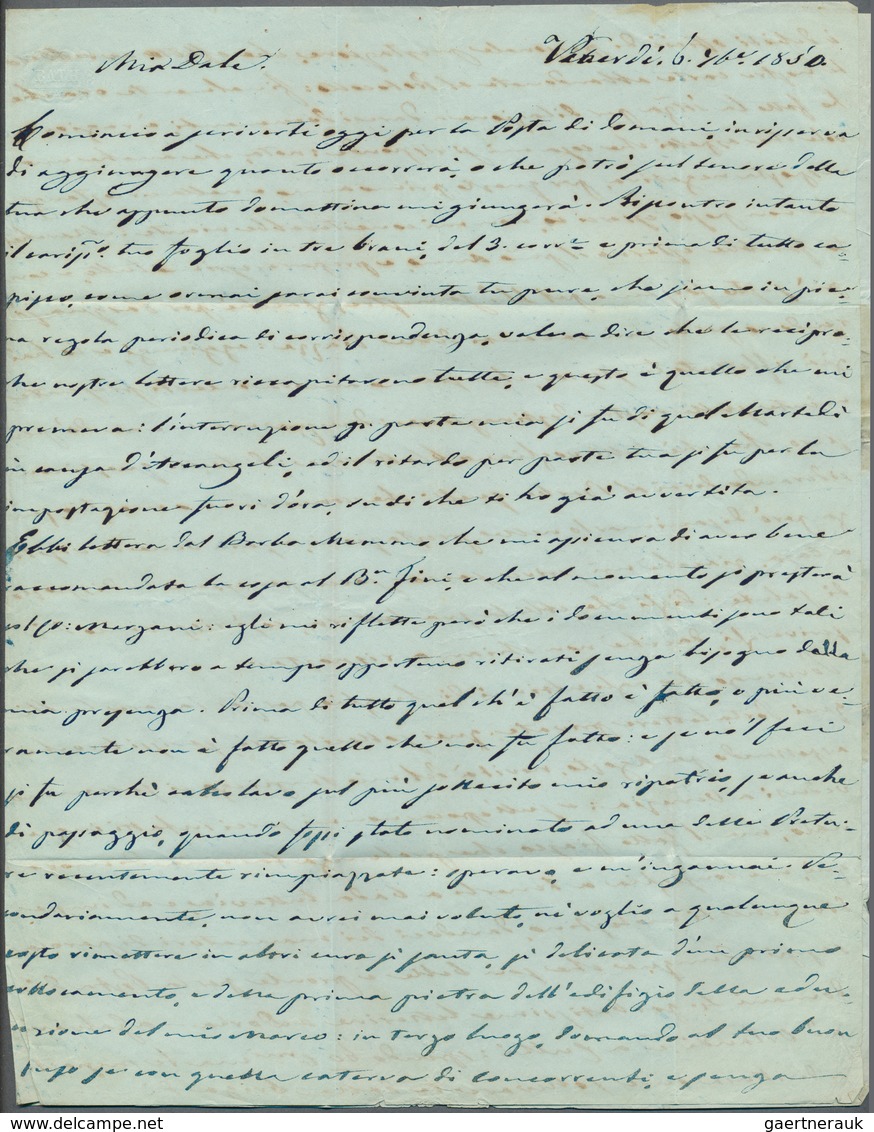 Mia Dale.
Venerdì. 6. 7bre 1850.
Comincio a scriverti oggi per la Posta di domani, in riserva
di aggiungere quanto occorrerà, o che potrò sul tenore della
tua che appunto domattina mi giungerà. Riscontro intanto
il cariss.o tuo foglio in tre brani, del 3. corr.e e prima di tutto ca-
pisco, come oramai sarai convinta tu pure, che siamo in pie-
na regola periodica di corrispondenza, vale a dire che le recipro-
che nostre lettere ricapitarono tutte, e questo è quello che mi
premeva: l'interruzione p. parte mia si fu di quel Martedì
in causa d'Arcangeli, ed il ritardo per parte tua si fu per la
impostazione fuori d'ora, su di che ti ho già avvertita.
Ebbi lettera dal Barba Memmo che mi assicura di aver bene
raccomandata la cosa al B.n Fini, e che al momento si presterà
Marzani: egli mi riflette però che i documenti sono tali
che si sarebbero a tempo opportuno ritirati senza bisogno della
mia presenza. Prima di tutto quel ch'è fatto è fatto, o più ve-
ramente non è fatto quello che non fu fatto: e se no'l feci
si fu perchè calcolavo sul più sollecito mio ripatrio, se anche
di passaggio, quando fossi stato nominato ad una delle Pretu-
re recentemente rimpiazzate: speravo, e m'ingannai. Se-
condariamente, non avrei mai voluto, nè voglio a qualunque
costo rimettere in altri cura sì santa, sì delicata d'un primo
collocamento, e della prima pietra dell'edifizio della edu-
cazione del mio Marco: in terzo luogo, domando al tuo buon
senso se con quella caterva di concorrenti, e senza
gaertnerauk